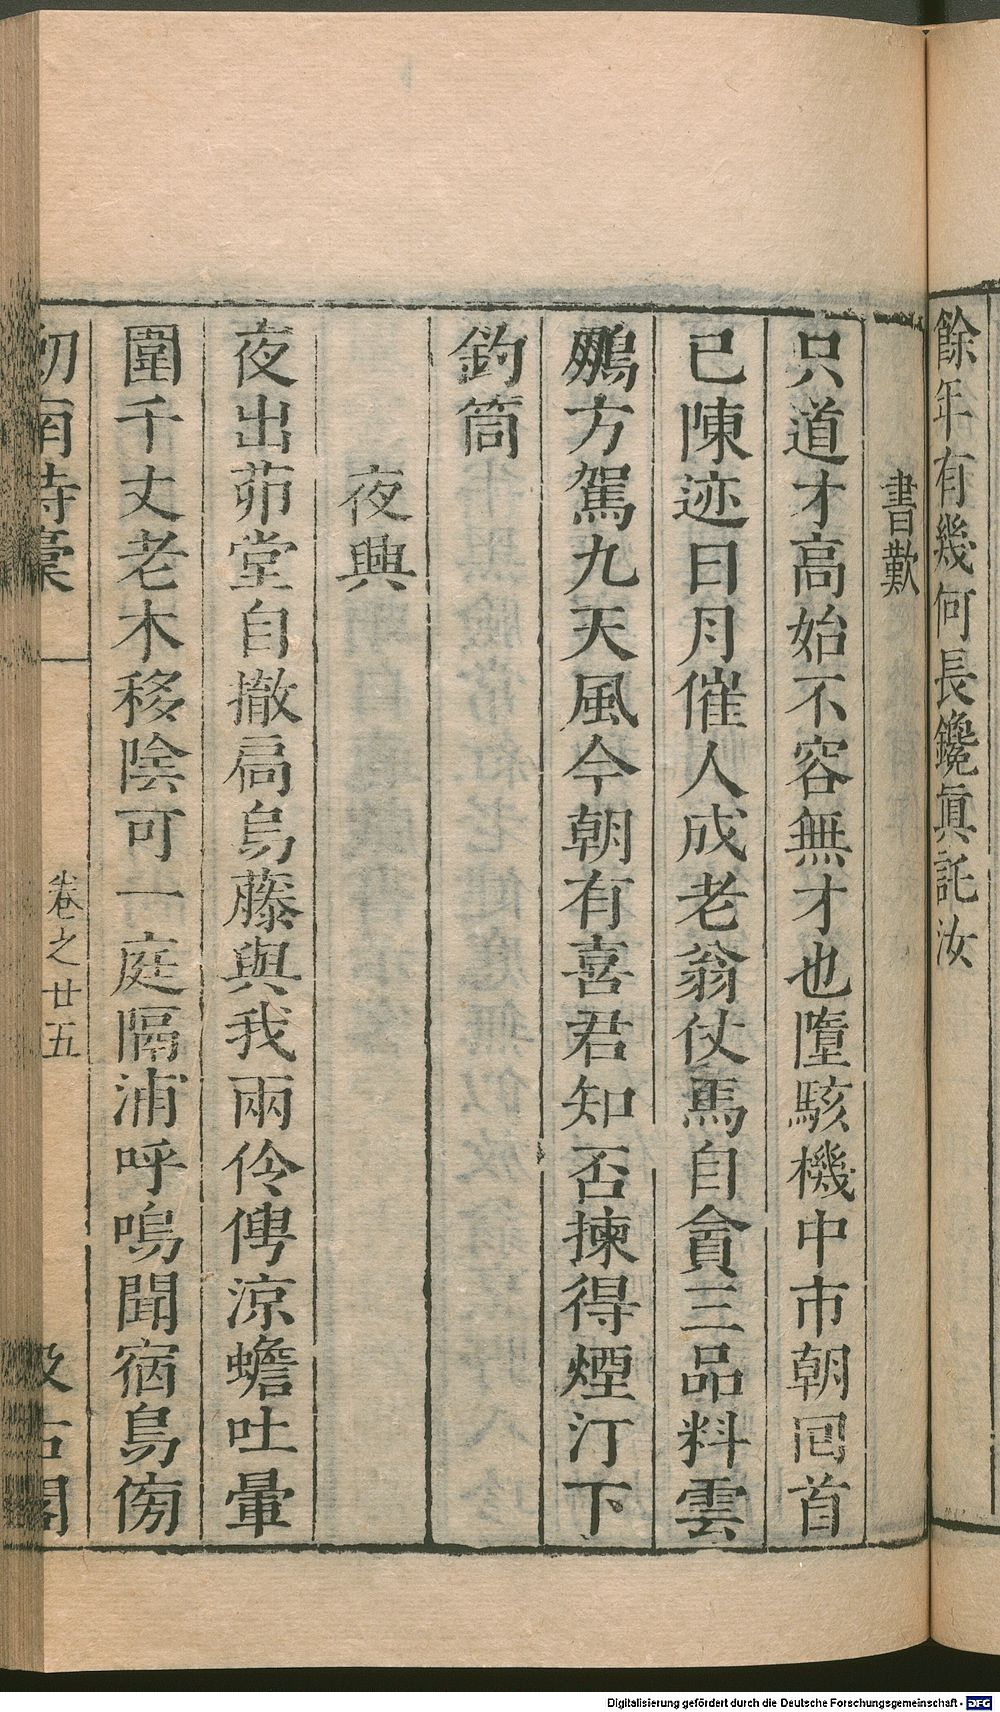 餘年有幾何長鑱眞託汝
書歎
只道才高始不容無才也墮駭機中市朝回首
已陳迹日月催人成老翁仗馬自貪三品料雲
鵬方駕九天風今朝有喜君知否揀得煙汀下
釣筒
夜興
夜出茆堂自撤扃烏藤與我兩伶俜涼蟾吐暈
圍千丈老木移陰可一庭隔浦呼鳴聞宿鳥傍
劒南詩稾
卷之廿五
汲古閣
Digitalisierung gefördert durch die Deutsche Forschungsgemeinschaft - DFG